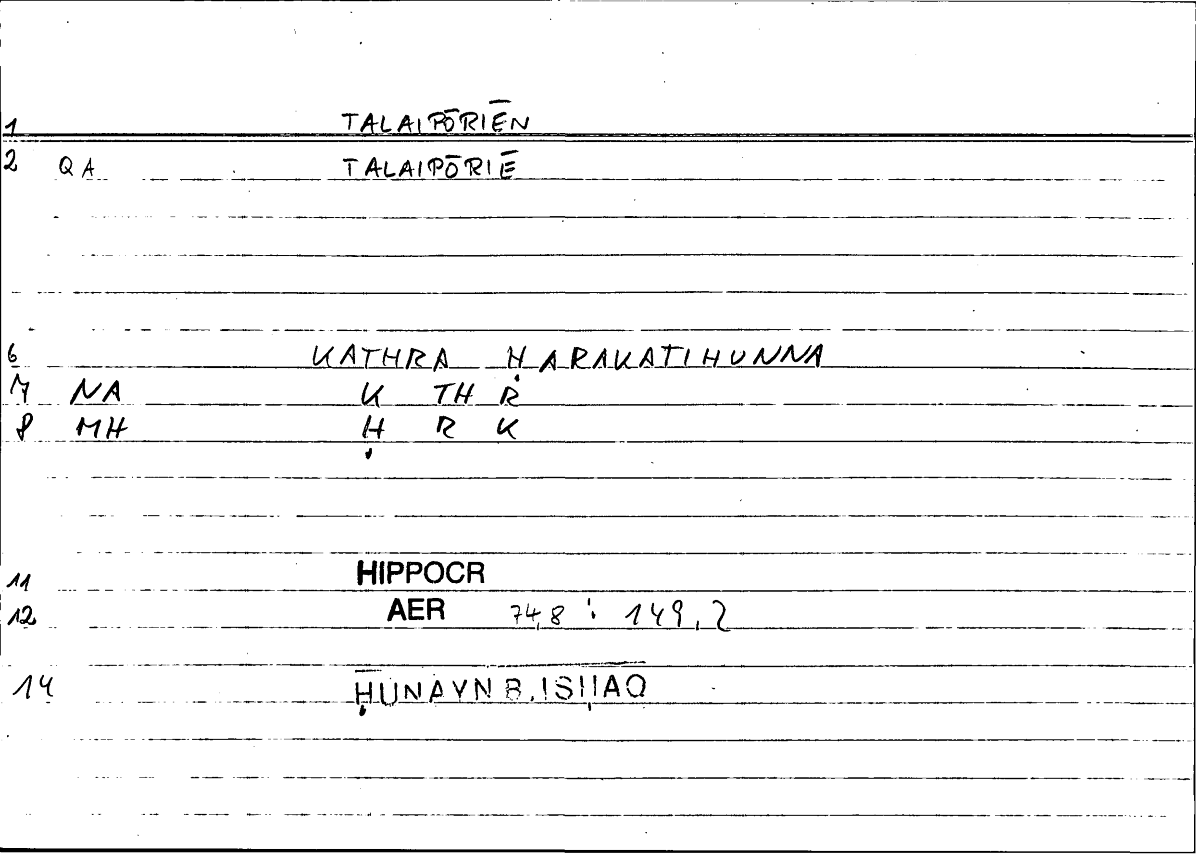 1 TALAIPŌRIĒN
2 QA TALAIPŌRIĒ
6 KATHRA ḤARAKATIHUNNA
7 NA K TH R
8 MH Ḥ R K
11 HIPPOCR
12 AER 74,8 : 149,2
14 ḤUNAYN B. ISḤAQ